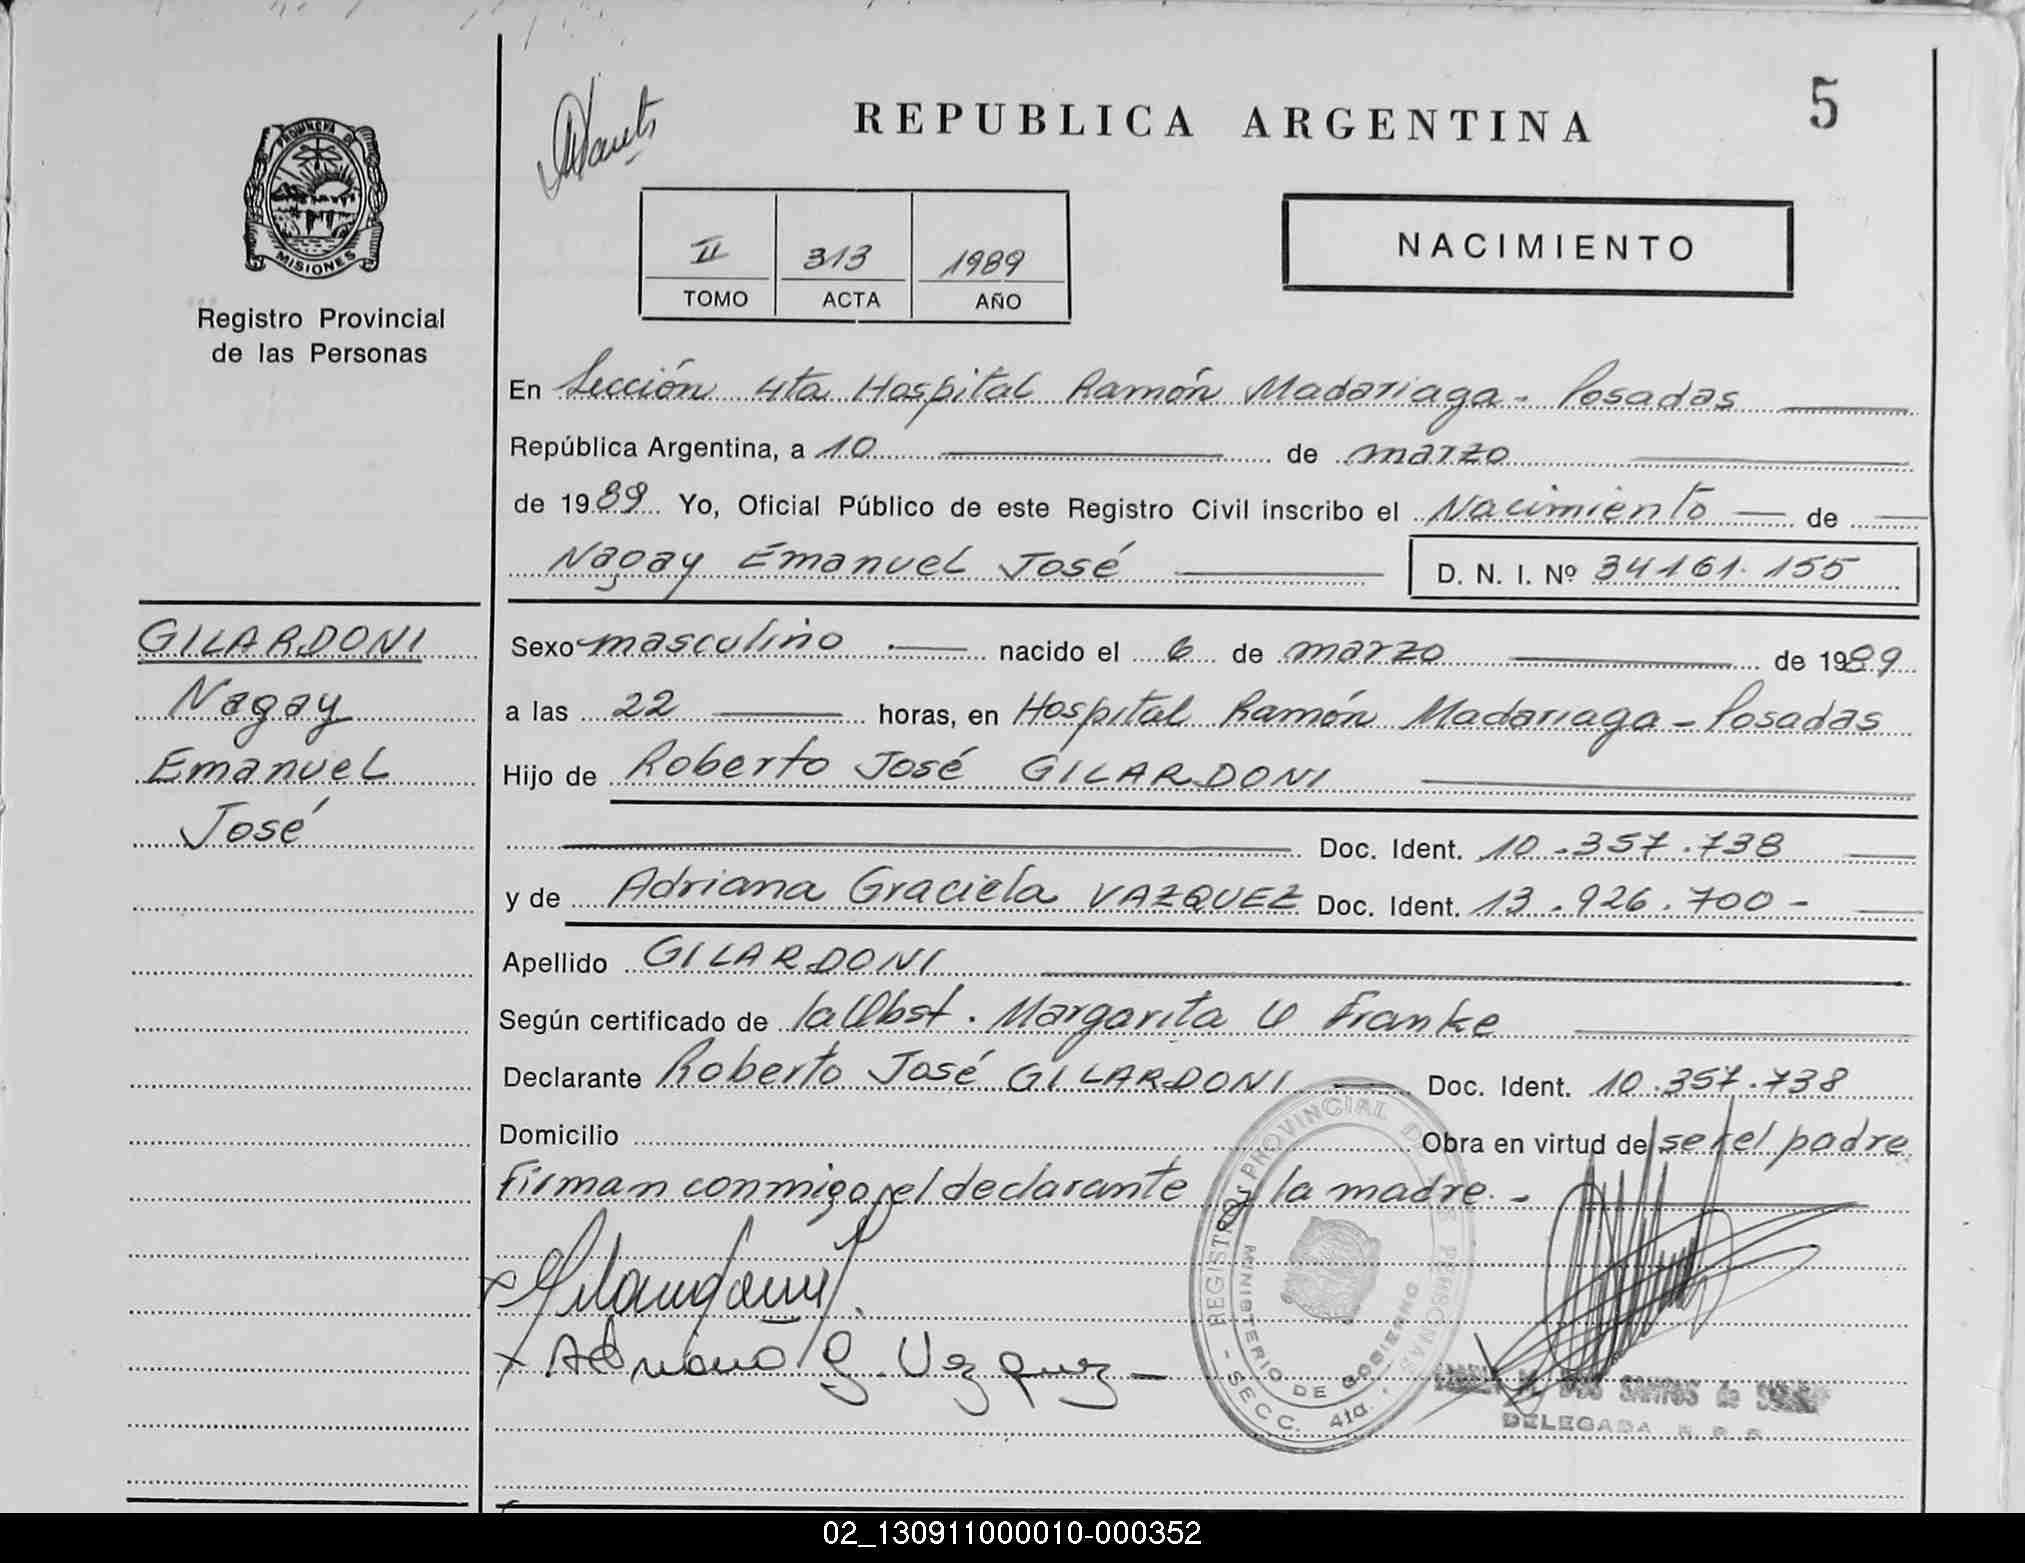 REPUBLICA ARGENTINA
5
PROVINCIA DE
MISIONES
Registro Provincial
de las Personas
II 313 1989
TOMO ACTA AÑO
NACIMIENTO
En Sección 4ta Hospital Ramón Madariaga - Posadas
República Argentina, a 10 de marzo
de 1989 Yo, Oficial Público de este Registro Civil inscribo el Nacimiento de
Nagay Emanuel José D. N. I. Nº 34161.155
GILARDONI
Nagay
Emanuel
José
Sexo masculino nacido el 6 de marzo de 1989
a las 22 horas, en Hospital Ramón Madariaga - Posadas
Hijo de Roberto José GILARDONI
Doc. Ident. 10.357.738
y de Adriana Graciela VAZQUEZ Doc. Ident. 13.926.700-
Apellido GILARDONI
Según certificado de la Obst. Margarita Franke
Declarante Roberto José GILARDONI Doc. Ident. 10.357.738
Domicilio Obra en virtud de ser el padre
Firman conmigo, el declarante y la madre.-
Adriana G. Vazquez
REGISTRO PROVINCIAL DE LAS PERSONAS
MINISTERIO DE GOBIERNO
- SECC. 4ta. -
DOS SANTOS de
DELEGADA R. P. P.
02_130911000010-000352